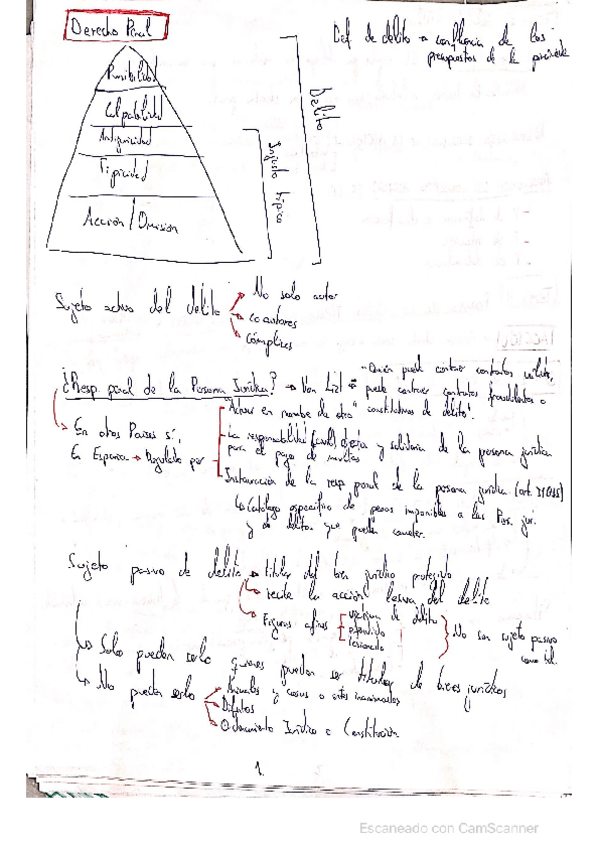 Derecho Penal
Def de delito → confluencia de los
presupuestos de la
Punibilidad
Culpabilidad
Antijuricidad
Tipicidad
Acción / Omisión
Injusto típico
Delito
Sujeto activo del delito
No solo autor
coautores
cómplices
¿Resp. penal de la Persona Jurídica? → Von Lizt → "Quien puede contraer contratos
puede contraer contratos fraudulentos o
constitutivos de delito".
En otros Países sí,
En España → Regulado por
"Actuar en nombre de otro"
La responsabilidad (civil) directa y solidaria de la persona jurídica
para el pago de multas
Instauración de la resp penal de la persona jurídica (art.
↳ Catálogo específico de penas imponibles a las Pers. jur.
y de delitos que pueden cometer.
Sujeto pasivo de delito → titular del bien jurídico protegido
recibe la acción lesiva del delito
Figuras afines
víctima de delito
ofendido
lesionado
No son sujeto pasivo
como tal.
Solo pueden serlo quienes pueden ser titular de bienes jurídicos
No pueden serlo
Animales y cosas o entes inanimados
Difuntos
Ordenamiento Jurídico o Constitución.
1.
Escaneado con CamScanner